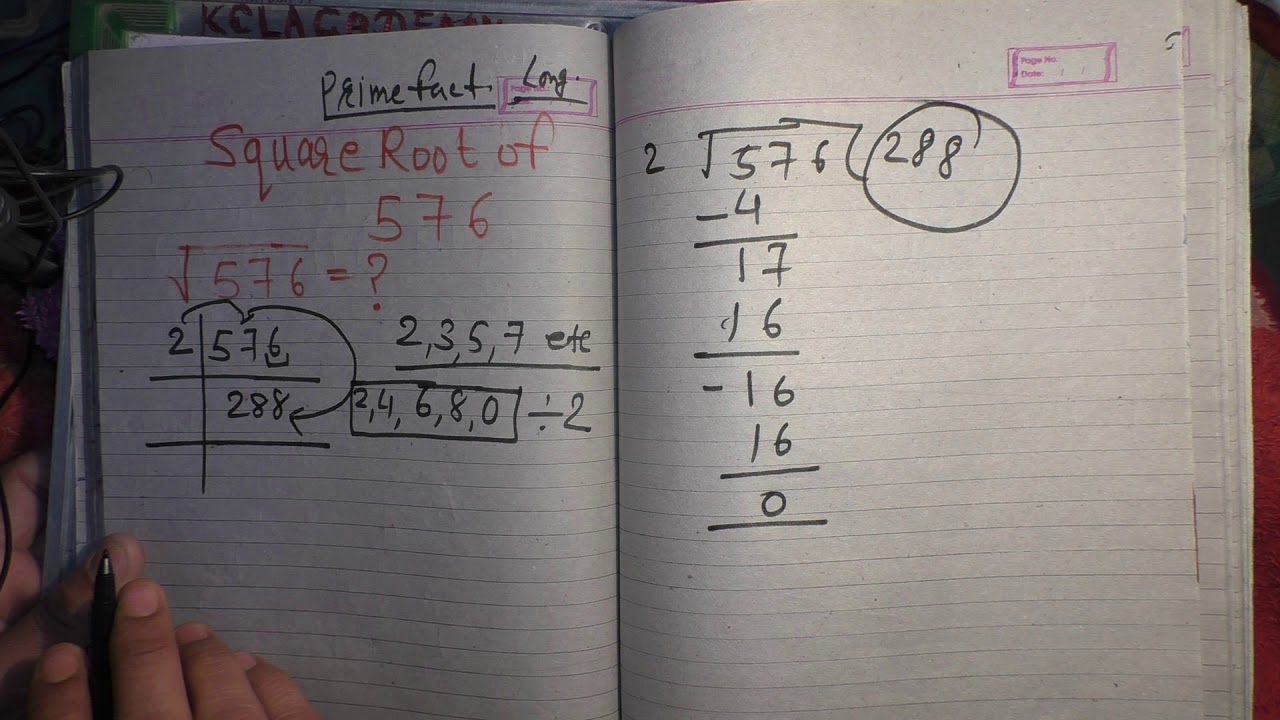 KCLACADEMY
Prime fact. Long.
Square Root of
576
√576 = ?
2 | 576
288
2,3,5,7 etc
2,4,6,8,0 ÷2
Page No:
Date: / /
2 √576 ( 288
-4
17
16
-16
16
0